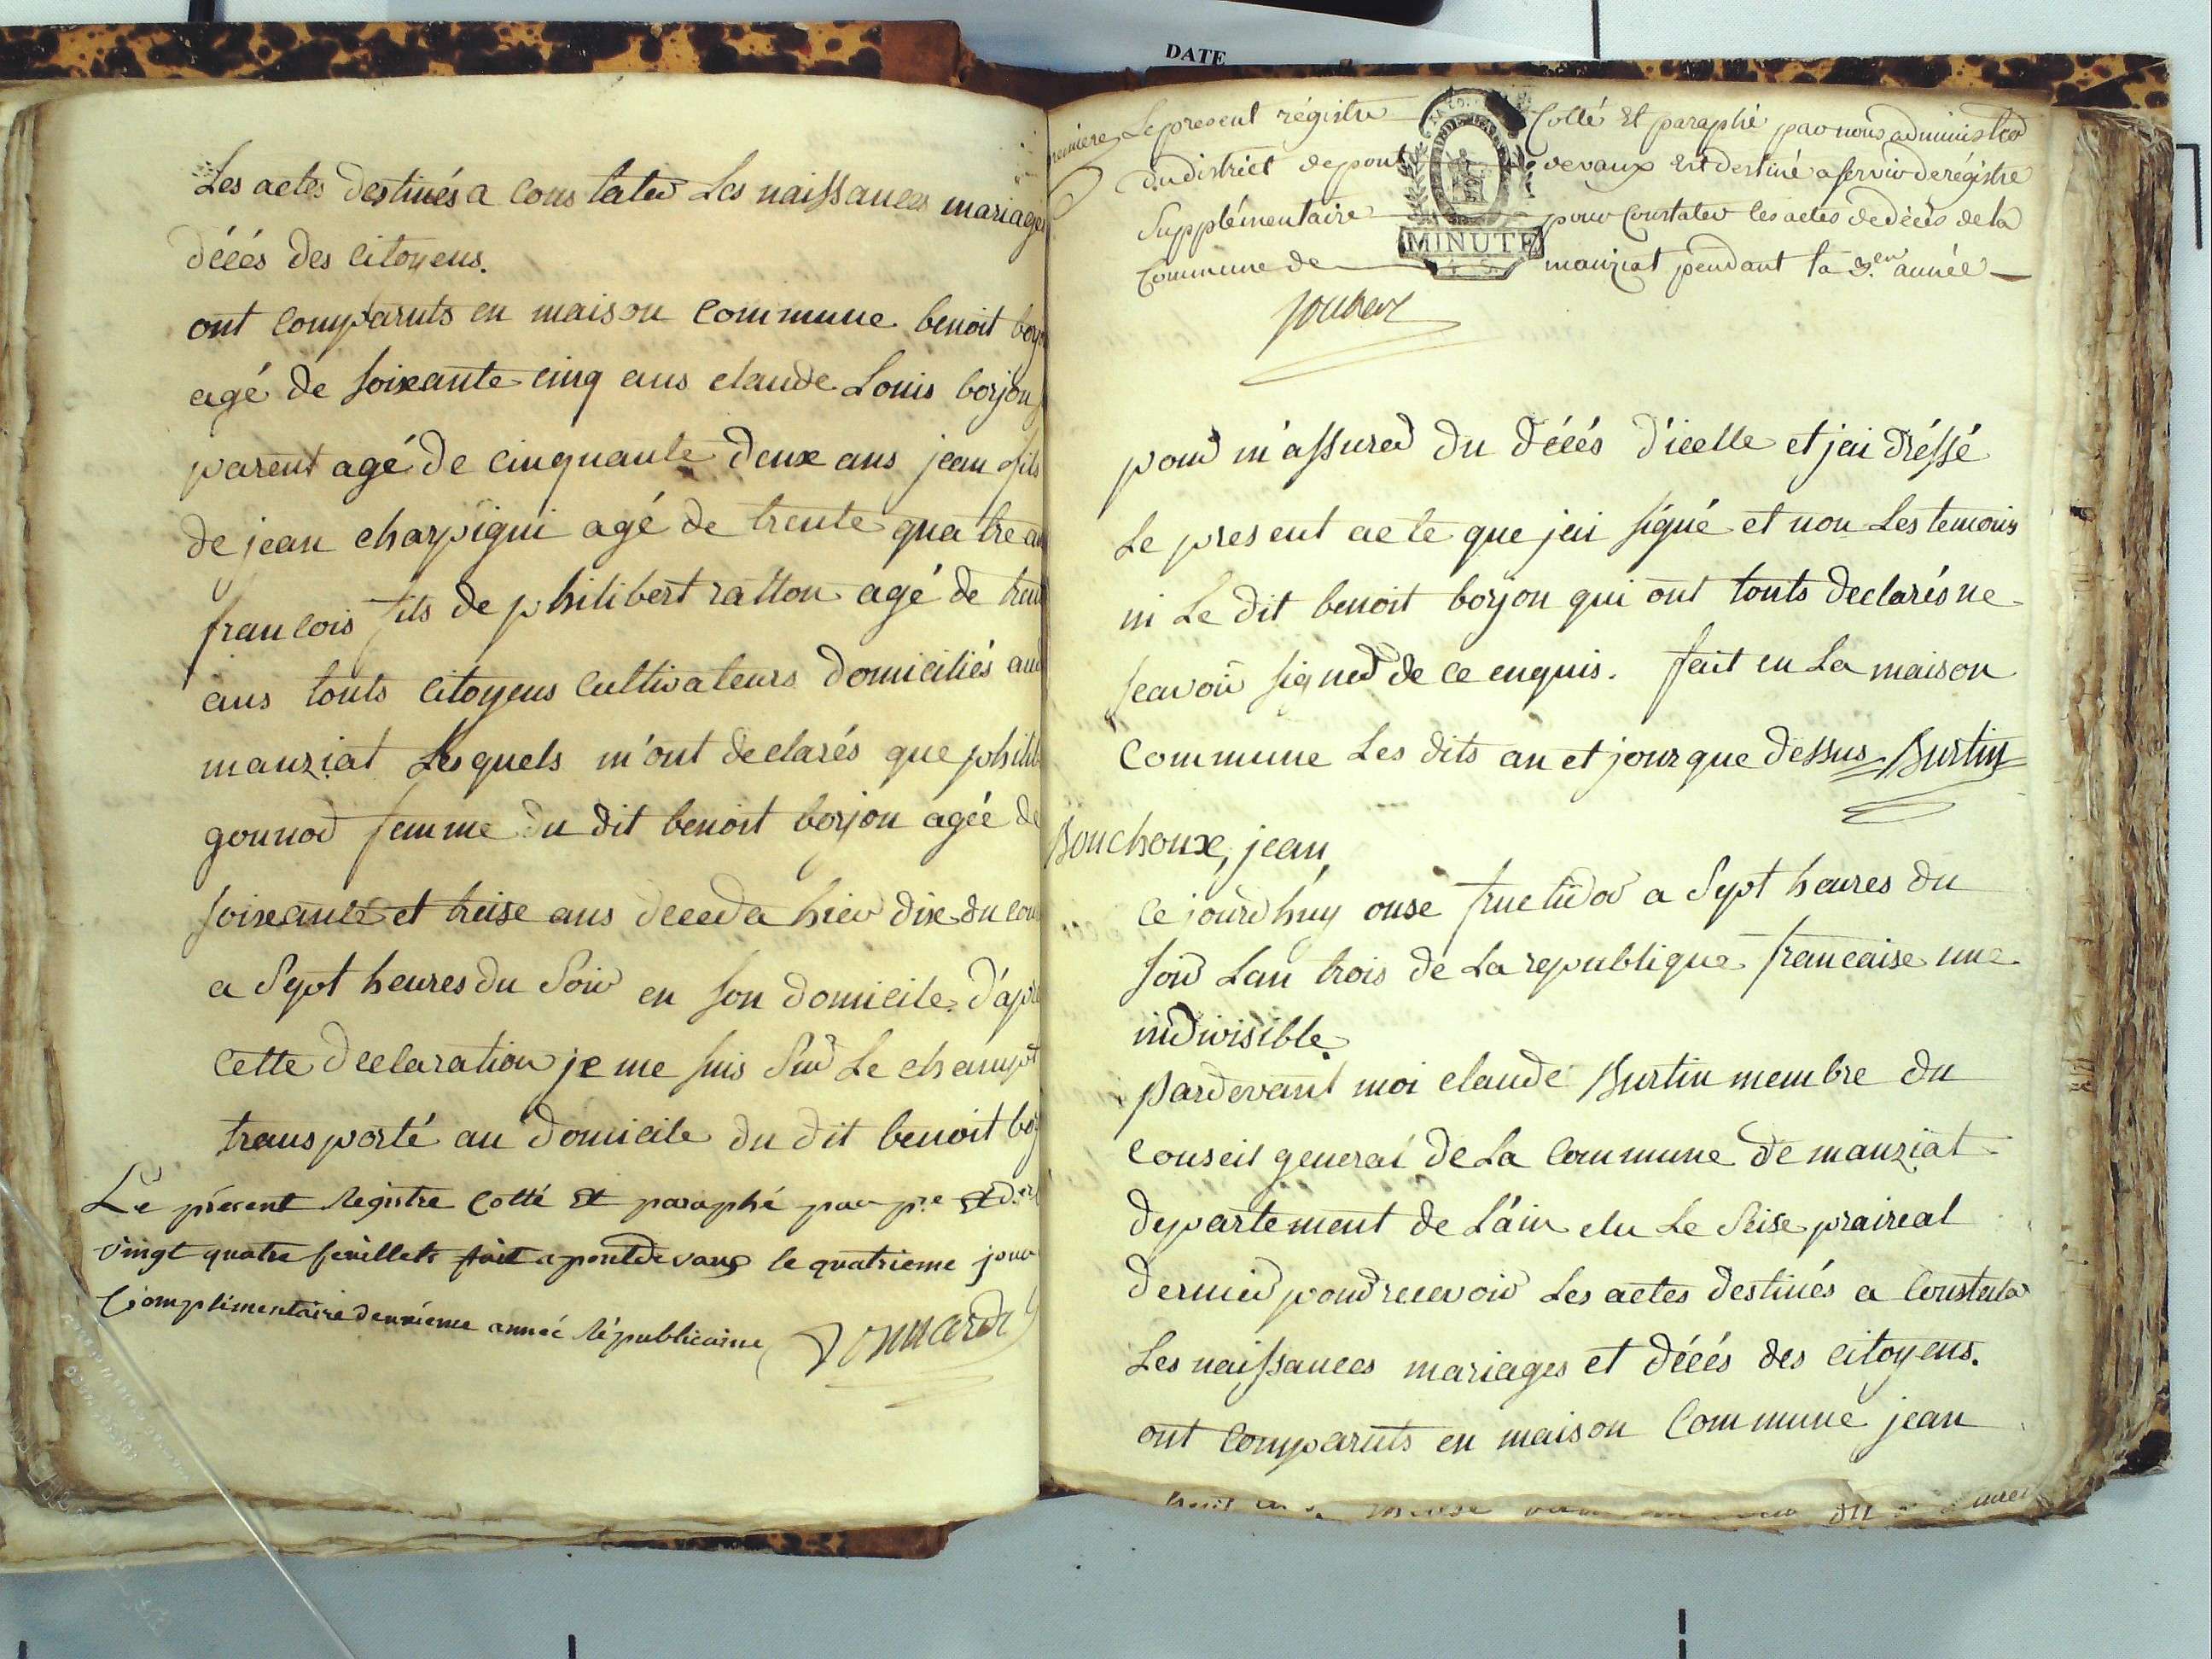 Les actes destinés a constater Les naissances mariages
décés des citoyens.
ont comparuts en maison commune benoit
agé de soixante cinq ans claude Louis borjon
parent agé de cinquante deux ans jean fils
de jean charpigni agé de trente quatre
francois fils de philibert ratton agé de
ans touts citoyens cultivateurs domiciliés
manziat Lesquels m'ont declarés que
gonnod femme du dit benoit borjon agée de
soixante et treise ans deceda hier dix du
a Sept heures du Soir en son domicile. d'apre
cette declaration je me suis Sur Le champt
transporté au domicile du dit benoit
Le présent Registre Cotté Et paraphé par
vingt quatre feuillets fait a pontdevaux le quatrieme jour
Complimentaire deuxiéme année Républicaine
DATE
Le present régistre Cotté Et paraphé par nous administ
du district de pont devaux Est destiné a servir de régistre
Supplémentaire pour Constater les actes de décès de la
Commune de manziat pendant la 3.eme année
MINUTE
pour m'assurer du décés d'icelle et jai dréssé
Le present acte que jai signé et non Les temoins
ni Le dit benoit borjon qui ont touts declarés ne
scavoir signer de ce enquis. fait en La maison
commune Les dits an et jour que dessus Burtin
Bouchoux, jean,
cejourdhuy onse fructidor a Sept heures du
soir Lan trois de La republique francaise une
indivisible.
pardevant moi claude Burtin membre du
conseil general de La commune de manziat
departement de L'ain elu Le Seise praireal
dernier pour recevoir Les actes destinés a Constater
Les naissances mariages et décés des citoyens.
ont comparuts en maison Commune jean